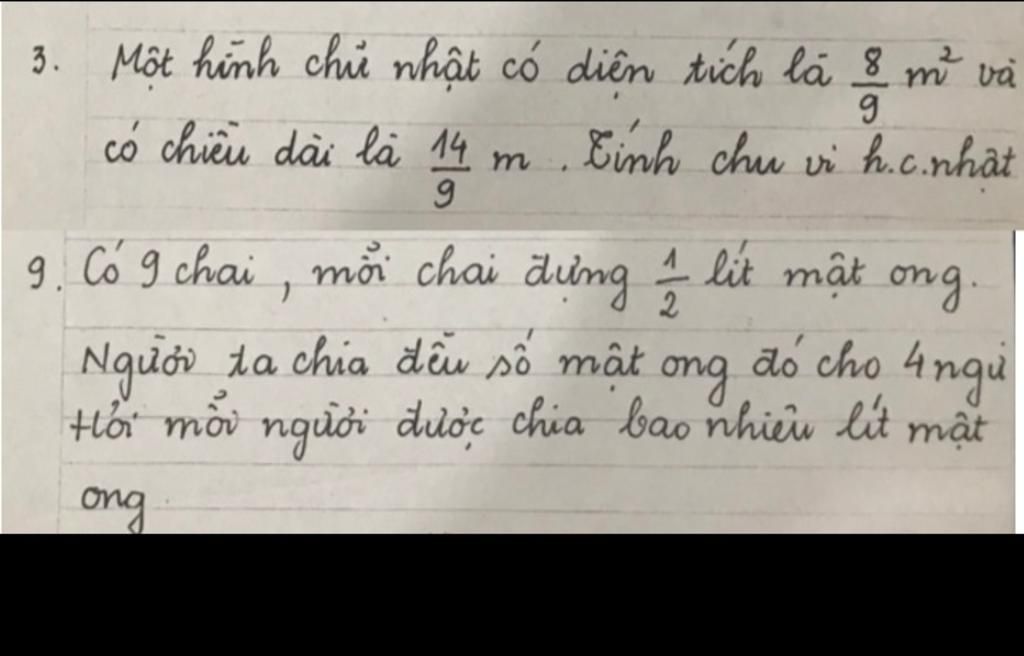 3. Một hình chữ nhật có diện tích là 8/9 m² và
có chiều dài là 14/9 m. Tính chu vi h.c.nhật
9. Có 9 chai, mỗi chai đựng 1/2 lít mật ong.
Người ta chia đều số mật ong đó cho 4 ngư
Hỏi mỗi người được chia bao nhiêu lít mật
ong